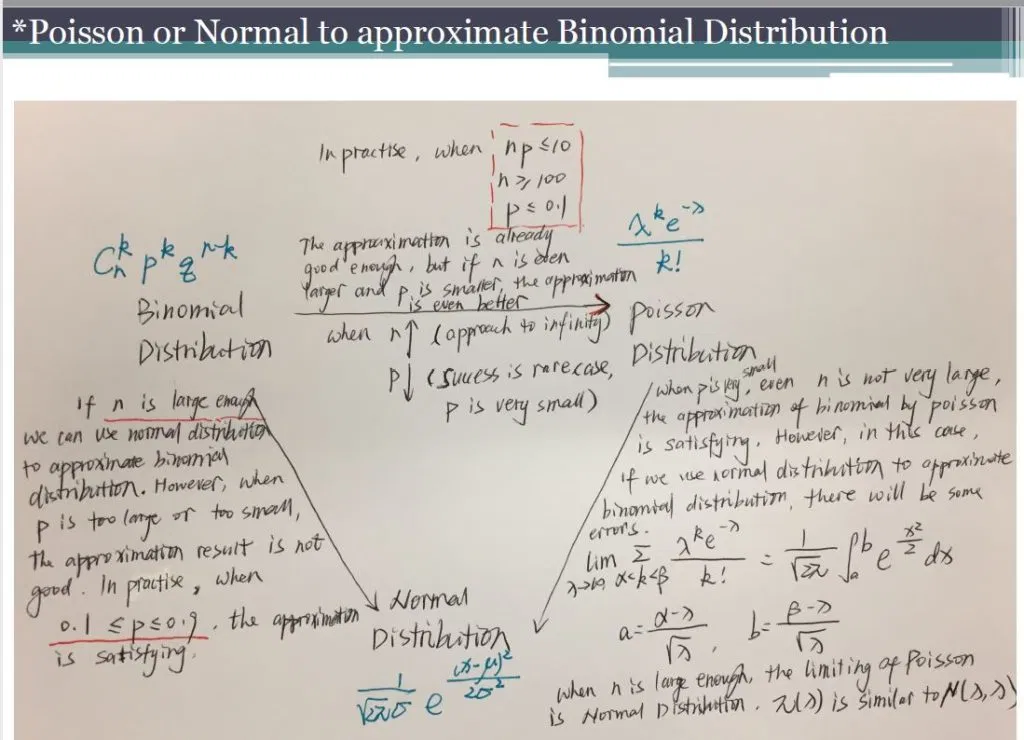 *Poisson or Normal to approximate Binomial Distribution
In practise, when
np ≤ 10
n ≥ 100
p ≤ 0.1
C_n^k p^k q^{n-k}
Binomial
Distribution
The approximation is already
good enough, but if n is even
larger and p is smaller, the approximation
is even better
when n↑ (approach to infinity)
p↓ (success is rare case,
p is very small)
λ^k e^{-λ} / k!
Poisson
Distribution
If n is large enough
we can use normal distribution
to approximate binomial
distribution. However, when
p is too large or too small,
the approximation result is not
good. In practise, when
0.1 ≤ p ≤ 0.9, the approximation
is satisfying.
when p is very small, even n is not very large,
the approximation of binomial by poisson
is satisfying. However, in this case,
if we use normal distribution to approximate
binomial distribution, there will be some
errors.
lim_{λ→+∞} Σ_{α<k<β} λ^k e^{-λ} / k! = 1/√2π ∫_a^b e^{x²/2} dx
a = (α-λ)/√λ, b = (β-λ)/√λ
when n is large enough, the limiting of Poisson
is Normal Distribution. π(λ) is similar to N(λ,λ)
Normal
Distribution
1/(√2πσ) e^{(x-μ)²/2σ²}